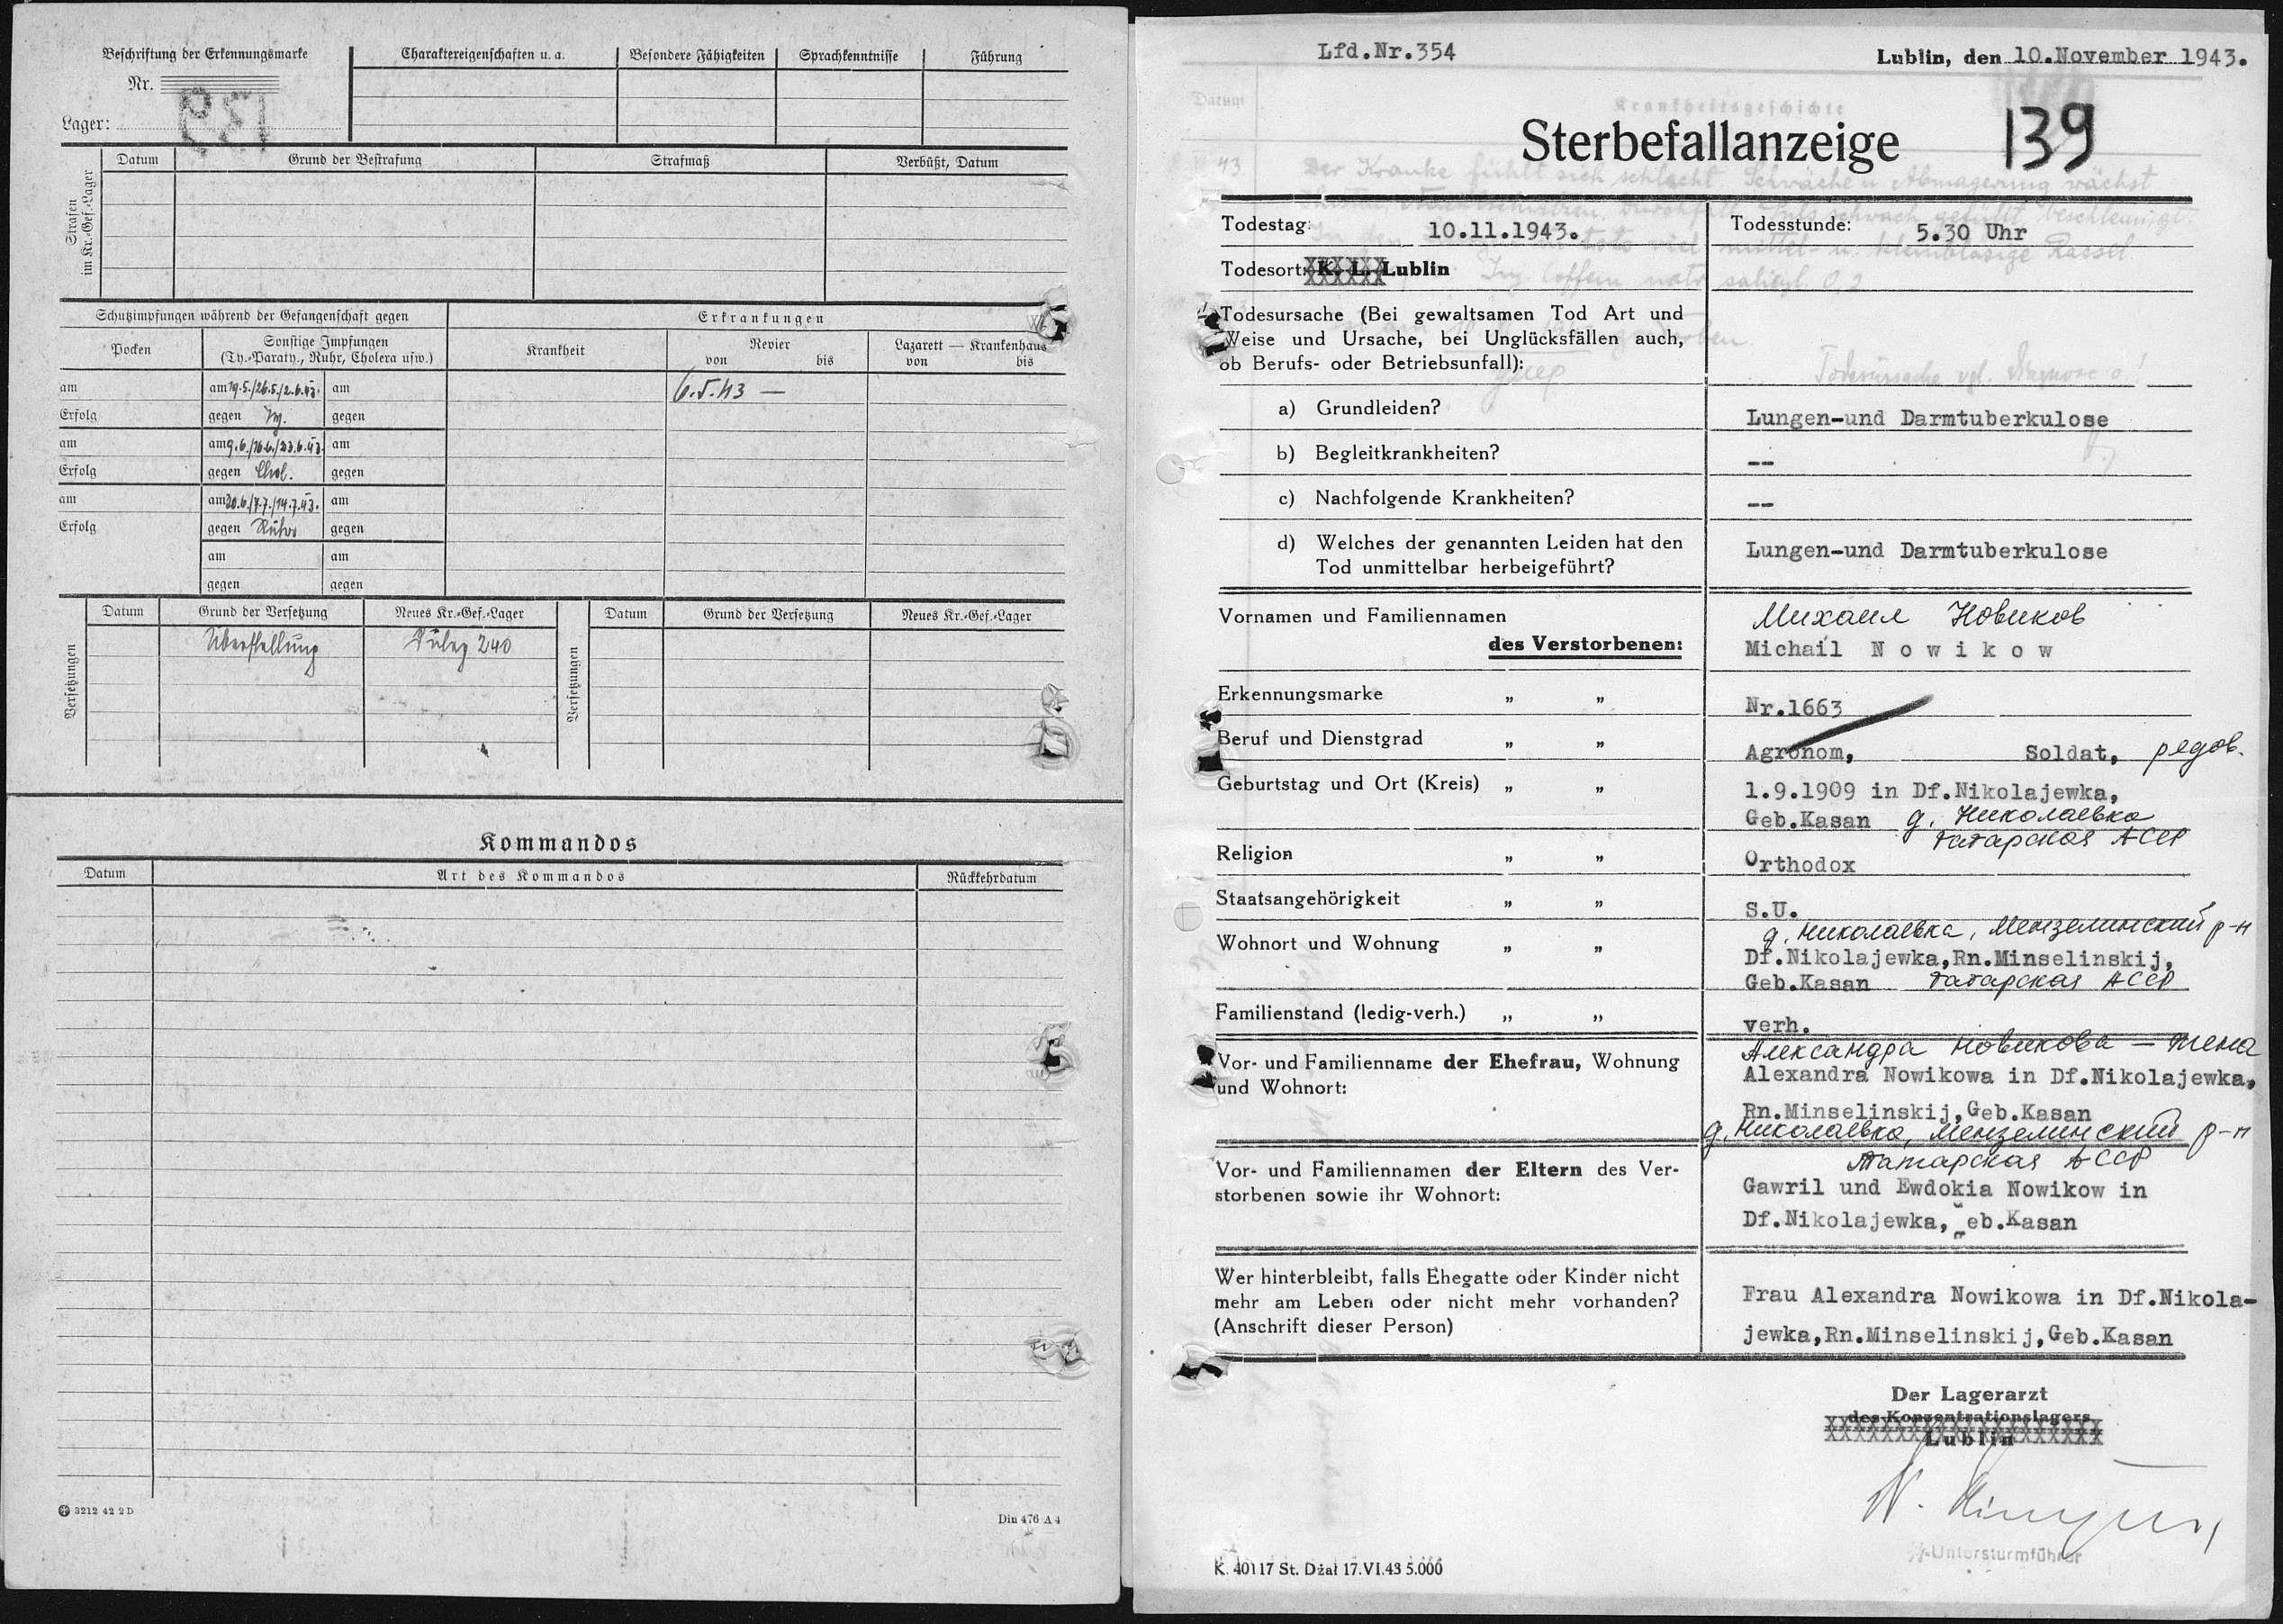 Beschriftung der Erkennungsmarke
Nr.
Lager:
Charaktereigenschaften u. a.
Besondere Fähigkeiten
Sprachkenntnisse
Führung
Strafen im Kr.-Gef.-Lager
Datum
Grund der Bestrafung
Strafmaß
Verbüßt, Datum
Schutzimpfungen während der Gefangenschaft gegen
Erkrankungen
Pocken
Sonstige Impfungen
(Ty.-Paraty., Ruhr, Cholera usw.)
Krankheit
Revier
von bis
Lazarett — Krankenhaus
von bis
am am 19.5./26.5./2.6.43. am 6.5.43 —
Erfolg gegen Ty. gegen
am am 9.6./16.6./23.6.43. am
Erfolg gegen Chol. gegen
am am 30.6./7.7./14.7.43. am
Erfolg gegen Ruhr gegen
am am
gegen gegen
Versetzungen
Datum Grund der Versetzung Neues Kr.-Gef.-Lager
Überstellung Dulag 240
Versetzungen
Datum Grund der Versetzung Neues Kr.-Gef.-Lager
Kommandos
Datum Art des Kommandos Rückkehrdatum
3212 42 2 D
Din 476 A 4
Lfd.Nr.354
Lublin, den 10.November 1943.
Datum
Krankheitsgeschichte
Sterbefallanzeige 139
43 Der Kranke fühlt sich schlecht Schwäche u Abmagerung wächst
Todestag: 10.11.1943. Todesstunde: 5.30 Uhr
Todesort: K. L. Lublin
Todesursache (Bei gewaltsamen Tod Art und
Weise und Ursache, bei Unglücksfällen auch,
ob Berufs- oder Betriebsunfall):
a) Grundleiden? Lungen-und Darmtuberkulose
b) Begleitkrankheiten? --
c) Nachfolgende Krankheiten? --
d) Welches der genannten Leiden hat den
Tod unmittelbar herbeigeführt? Lungen-und Darmtuberkulose
Vornamen und Familiennamen Михаил Новиков
des Verstorbenen: Michail Nowikow
Erkennungsmarke „ „ Nr.1663
Beruf und Dienstgrad „ „ Agronom, Soldat, рядов.
Geburtstag und Ort (Kreis) „ „ 1.9.1909 in Df.Nikolajewka,
Geb.Kasan д. Николаевка
Татарская АССР
Religion „ „ Orthodox
Staatsangehörigkeit „ „ S.U.
д. Николаевка, Мензелинский р-н
Wohnort und Wohnung „ „ Df.Nikolajewka,Rn.Minselinskij,
Geb.Kasan Татарская АССР
Familienstand (ledig-verh.) „ „ verh.
Александра Новикова — жена
Vor- und Familienname der Ehefrau, Wohnung
und Wohnort:
Alexandra Nowikowa in Df.Nikolajewka,
Rn.Minselinskij,Geb.Kasan
д. Николаевка, Мензелинский р-н
Татарская АССР
Vor- und Familiennamen der Eltern des Ver-
storbenen sowie ihr Wohnort:
Gawril und Ewdokia Nowikow in
Df.Nikolajewka, Geb.Kasan
Wer hinterbleibt, falls Ehegatte oder Kinder nicht
mehr am Leben oder nicht mehr vorhanden?
(Anschrift dieser Person)
Frau Alexandra Nowikowa in Df.Nikola-
jewka,Rn.Minselinskij,Geb.Kasan
Der Lagerarzt
des Konzentrationslagers
Lublin
-Untersturmführer
K. 40117 St. Dział 17.VI.43 5.000